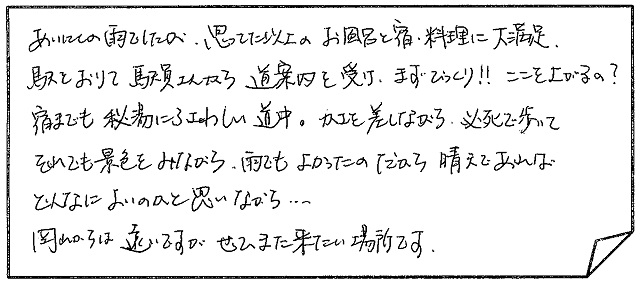 あいにくの雨でしたが、思てた以上の お風呂と宿・料理に 大満足。
駅をおりて 駅員さんから 道案内を受け、まずびっくり!! ここを上がるの?
宿までも 秘湯にふさわしい 道中。カサを差しながら、必死で歩いて
それでも景色をみながら、雨でも よかったの だから 晴天であれば
どんなに よいのかと思いながら…
岡山からは 遠いですが ぜひまた来たい場所です。